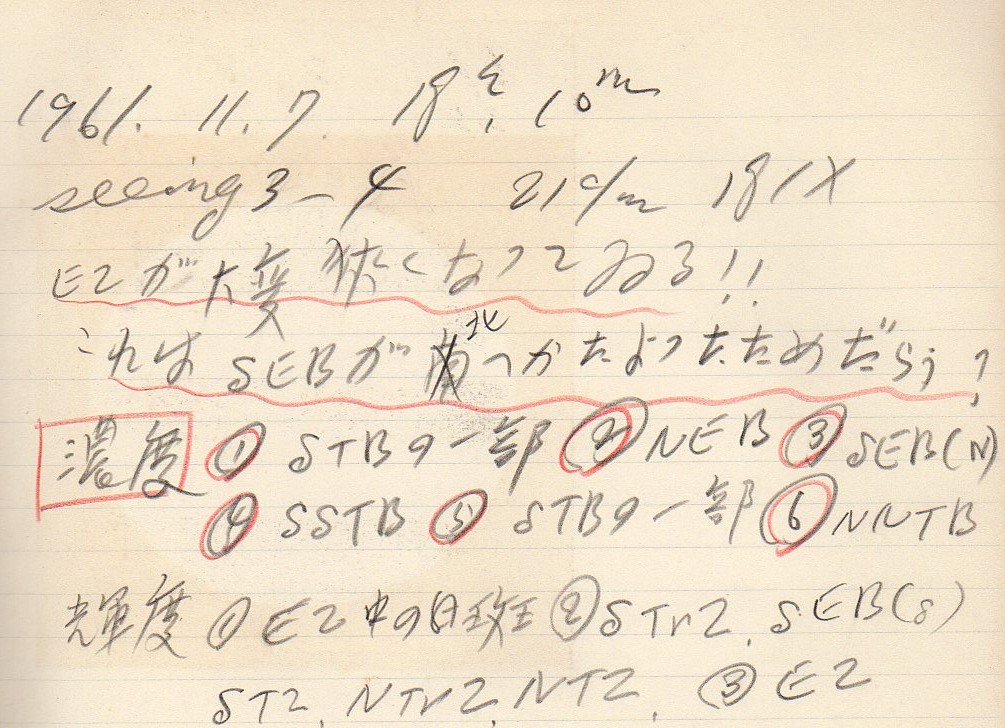 1961. 11. 7. 18h. 10m
seeing 3-4 21c/m 181X
EZが大変狭くなつてゐる!!
これはSEBが北へかたよつたためだらう?
濃度 ① STBの一部 ② NEB ③ SEB(N)
④ SSTB ⑤ STBの一部 ⑥ NNTB
輝度 ① EZ中の白斑 ② STrZ, SEB(S)
STZ, NTrZ, NTZ, ③ EZ